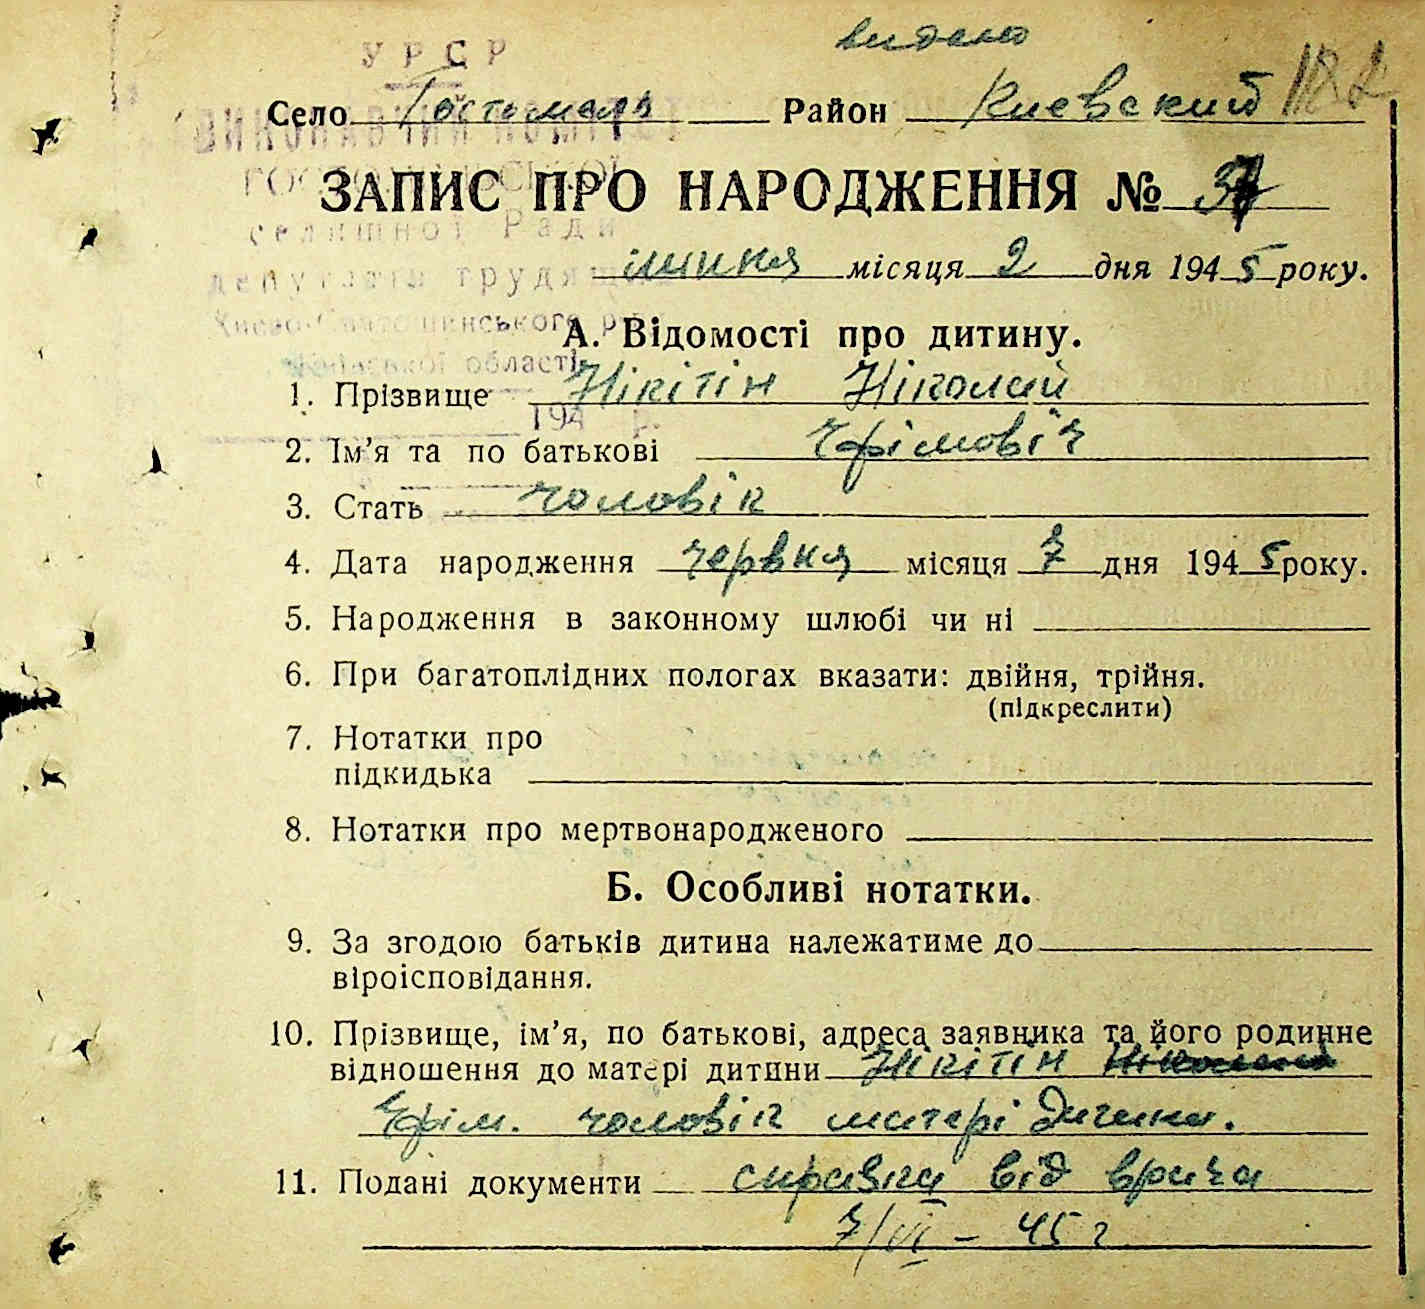 видано
УРСР
Село Гостомель Район Киевский 182
ВИКОНАВЧИЙ КОМІТЕТ
ЗАПИС ПРО НАРОДЖЕННЯ № 37
селищної Ради
липня місяця 2 дня 1945 року.
депутатів трудящих
Києво-Святошинського р
А. Відомості про дитину.
Київської області
1. Прізвище Нікітін Ніколай
194 р.
2. Ім'я та по батькові Єфімовіч
3. Стать чоловік
4. Дата народження червня місяця 7 дня 1945 року.
5. Народження в законному шлюбі чи ні
6. При багатоплідних пологах вказати: двійня, трійня.
(підкреслити)
7. Нотатки про
підкидька
8. Нотатки про мертвонародженого
Б. Особливі нотатки.
9. За згодою батьків дитина належатиме до
віроісповідання.
10. Прізвище, ім'я, по батькові, адреса заявника та його родинне
відношення до матері дитини Нікітін
Єфім. чоловік матері дитини.
11. Подані документи справка від врача
7/VI - 45 г